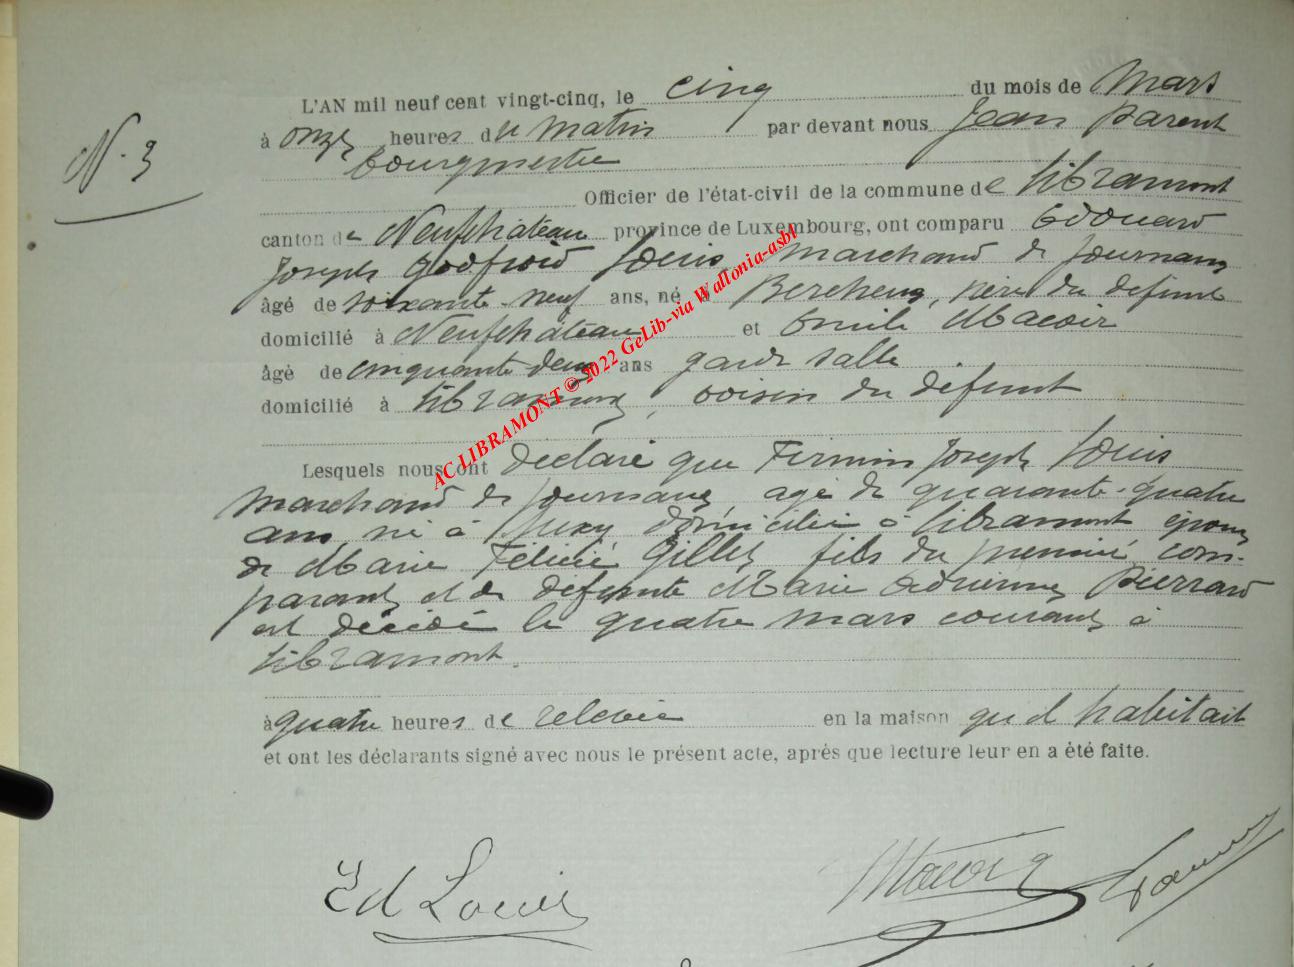 N. 3
L'AN mil neuf cent vingt-cinq, le cinq du mois de Mars
à onze heures du matin par devant nous Jean Parent
bourgmestre
Officier de l'état-civil de la commune de Libramont
canton de Neufchâteau province de Luxembourg, ont comparu Edouard
Joseph Godfroid Louis, marchand de journaux
âgé de soixante-neuf ans, né à Bercheux, père du défunt
domicilié à Neufchâteau et Emile Macoir
âgé de cinquante deux ans garde salle
domicilié à Libramont, voisin du défunt
Lesquels nous ont déclaré que Firmin Joseph Louis
marchand de journaux agé de quarante-quatre
ans, né à Juzy domicilié à Libramont époux
de Marie Félicie Gillet fils du premier com-
parant et de défunte Marie Adrienne Pierrard
est décédé le quatre mars courant à
Libramont.
à quatre heures de relevée en la maison qu'il habitait
et ont les déclarants signé avec nous le présent acte, après que lecture leur en a été faite.
Ed Louis Macoir Parent
AC LIBRAMONT © 2022 GeLib-via Wallonia-asbl